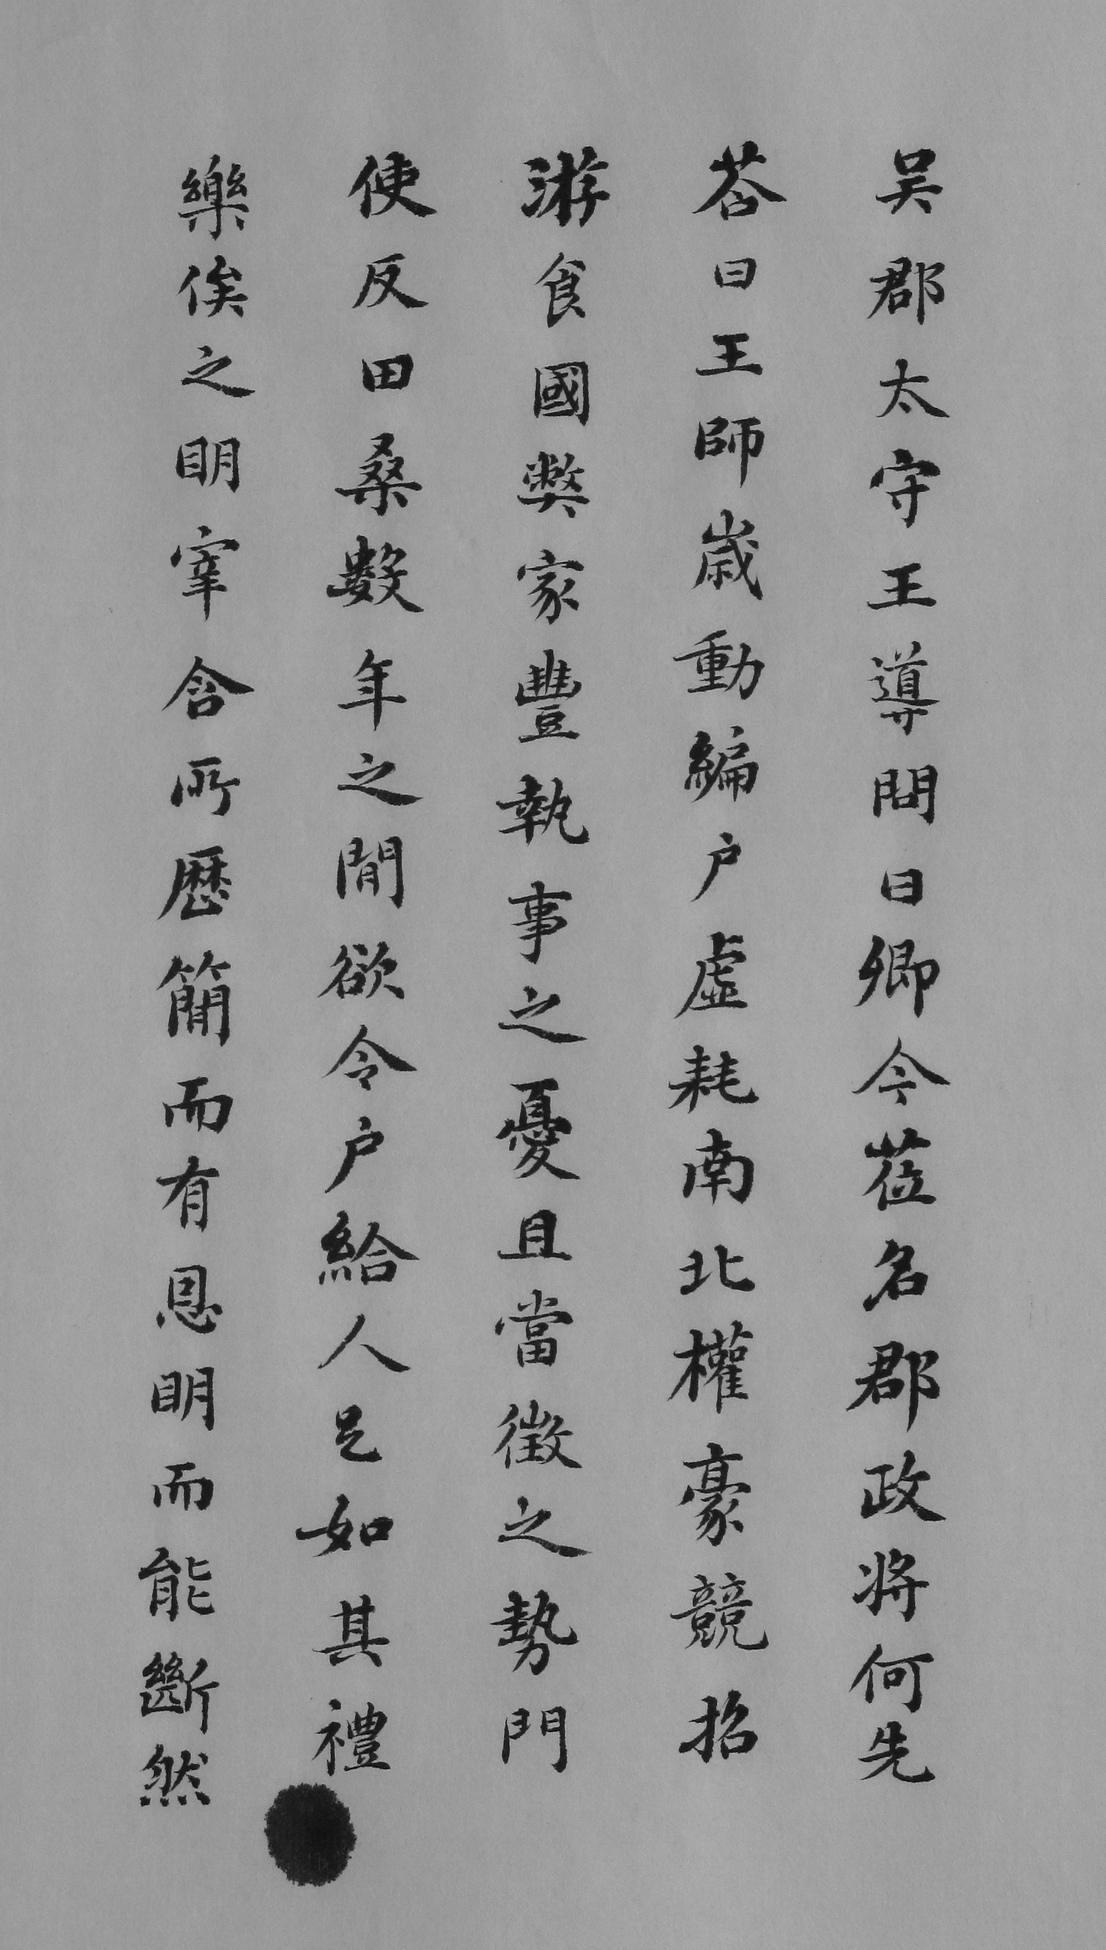 吴郡太守王導問曰卿今莅名郡政将何先
荅曰王師歲動編户虚耗南北權豪競招
游食國弊家豐執事之憂且當徵之勢門
使反田桑數年之間欲令户給人足如其禮
樂俟之明宰含所歷簡而有恩明而能斷然